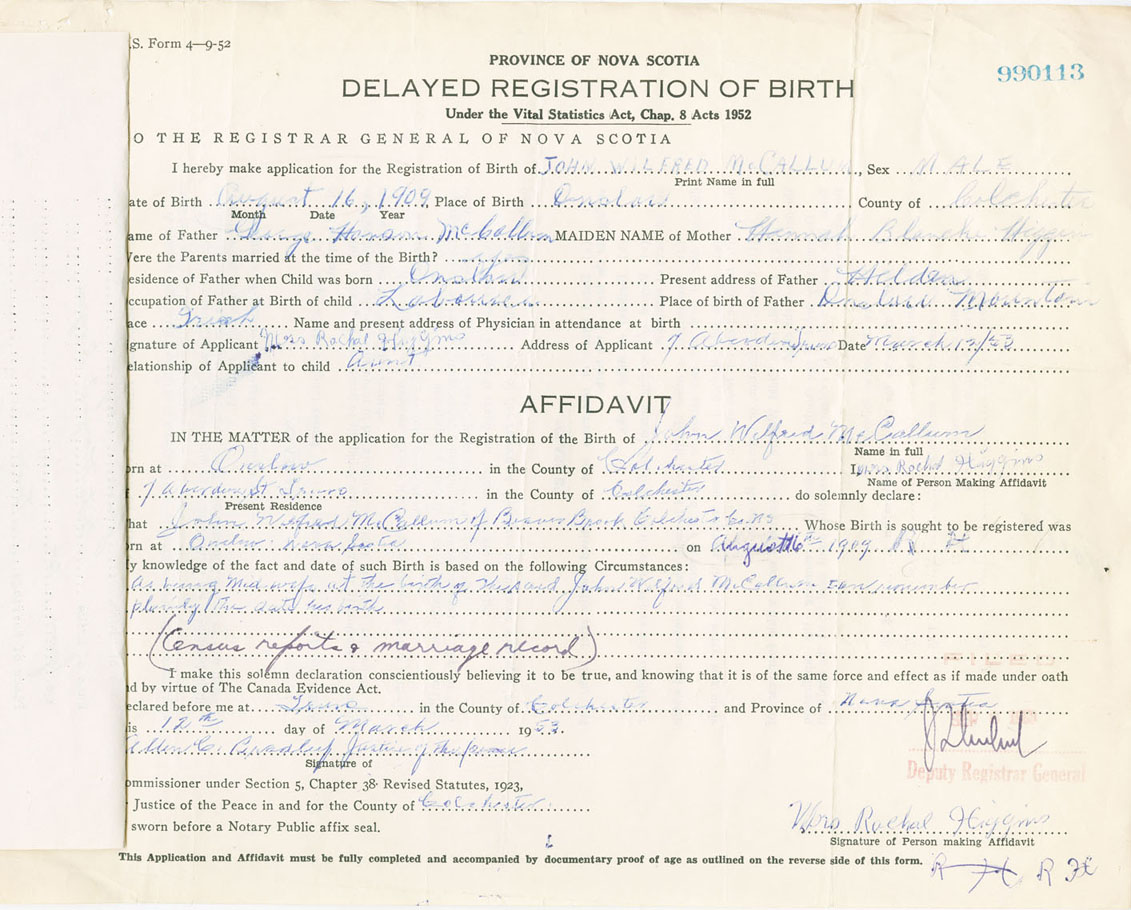 .S. Form 4—9-52
990113
PROVINCE OF NOVA SCOTIA
DELAYED REGISTRATION OF BIRTH
Under the Vital Statistics Act, Chap. 8 Acts 1952
O THE REGISTRAR GENERAL OF NOVA SCOTIA
I hereby make application for the Registration of Birth of JOHN WILFRED McCALLUM, Sex MALE
Print Name in full
ate of Birth August 16, 1909 Place of Birth Onslow County of Colchester
Month Date Year
ame of Father McCallum MAIDEN NAME of Mother Hannah Blanche
Were the Parents married at the time of the Birth? yes
esidence of Father when Child was born Onslow Present address of Father Hilden
ccupation of Father at Birth of child Labourer Place of birth of Father Onslow Mountain
ace Irish Name and present address of Physician in attendance at birth
ignature of Applicant Mrs Rachal Higgins Address of Applicant 7 Aberdeen Date March 12/53
elationship of Applicant to child Aunt
AFFIDAVIT
IN THE MATTER of the application for the Registration of the Birth of John Wilfred McCallum
Name in full
orn at Onslow in the County of Colchester I, Mrs Rachal Higgins
Name of Person Making Affidavit
f 7 Aberdeen St Truro in the County of Colchester do solemnly declare:
Present Residence
hat John Wilfred McCallum of Beaver Brook Whose Birth is sought to be registered was
orn at Onslow Nova Scotia on August 16th 1909 R H
y knowledge of the fact and date of such Birth is based on the following Circumstances:
As being Midwife at the birth of John Wilfred McCallum
the date his birth
(Census reports & marriage record)
I make this solemn declaration conscientiously believing it to be true, and knowing that it is of the same force and effect as if made under oath
d by virtue of The Canada Evidence Act.
FILED
eclared before me at Truro in the County of Colchester and Province of Nova Scotia
is 12th day of March 1953.
Justice of the Peace
Signature of
Deputy Registrar General
ommissioner under Section 5, Chapter 38 Revised Statutes, 1923,
Justice of the Peace in and for the County of Colchester
sworn before a Notary Public affix seal.
Mrs Rachal Higgins
Signature of Person making Affidavit
This Application and Affidavit must be fully completed and accompanied by documentary proof of age as outlined on the reverse side of this form.
R H R H